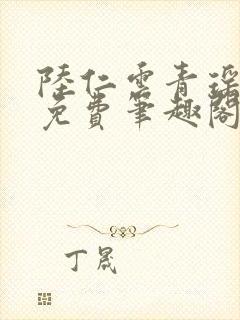 陸仁雲青瑤
免費筆趣閣
丁晟